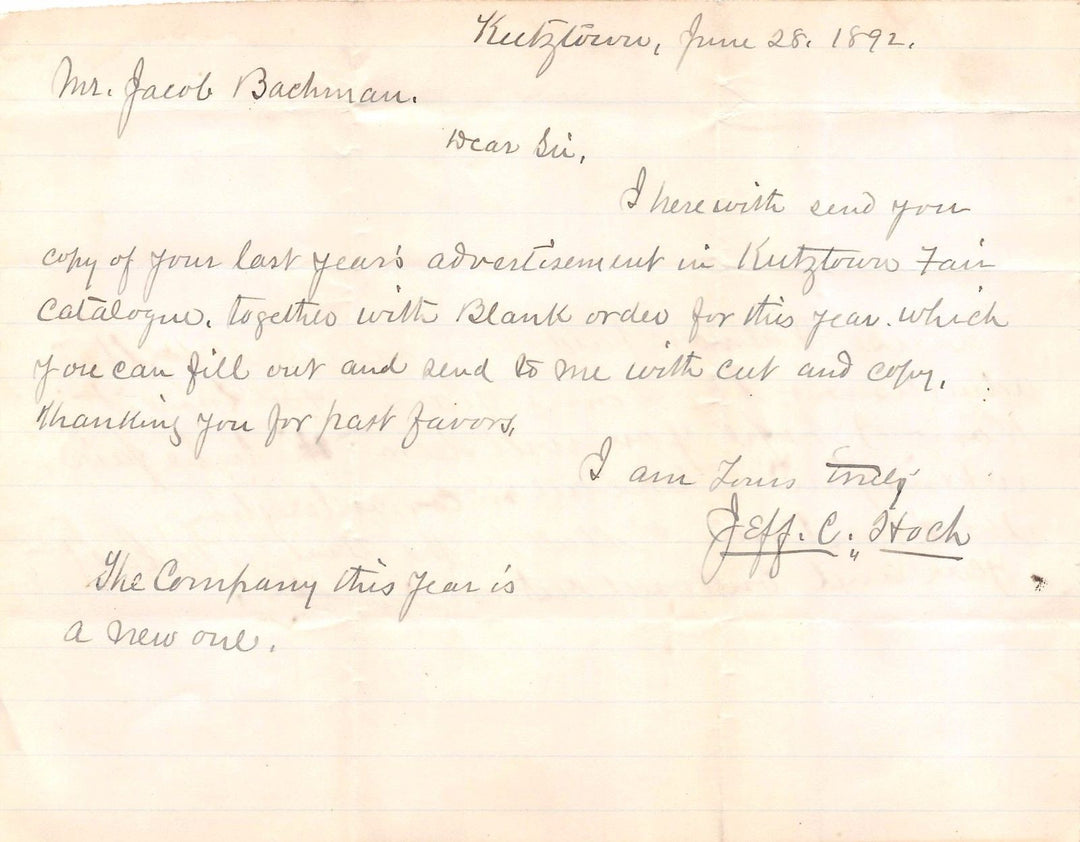 Kutztown, June 28. 1892.
Mr. Jacob Bachman.
Dear Sir,
I herewith send you
copy of your last year's advertisement in Kutztown Fair
Catalogue. together with Blank order for this year. which
you can fill out and send to me with cut and copy.
Thanking you for past favors,
I am Yours truly
Jeff. C. Hoch
The Company this year is
a new one.